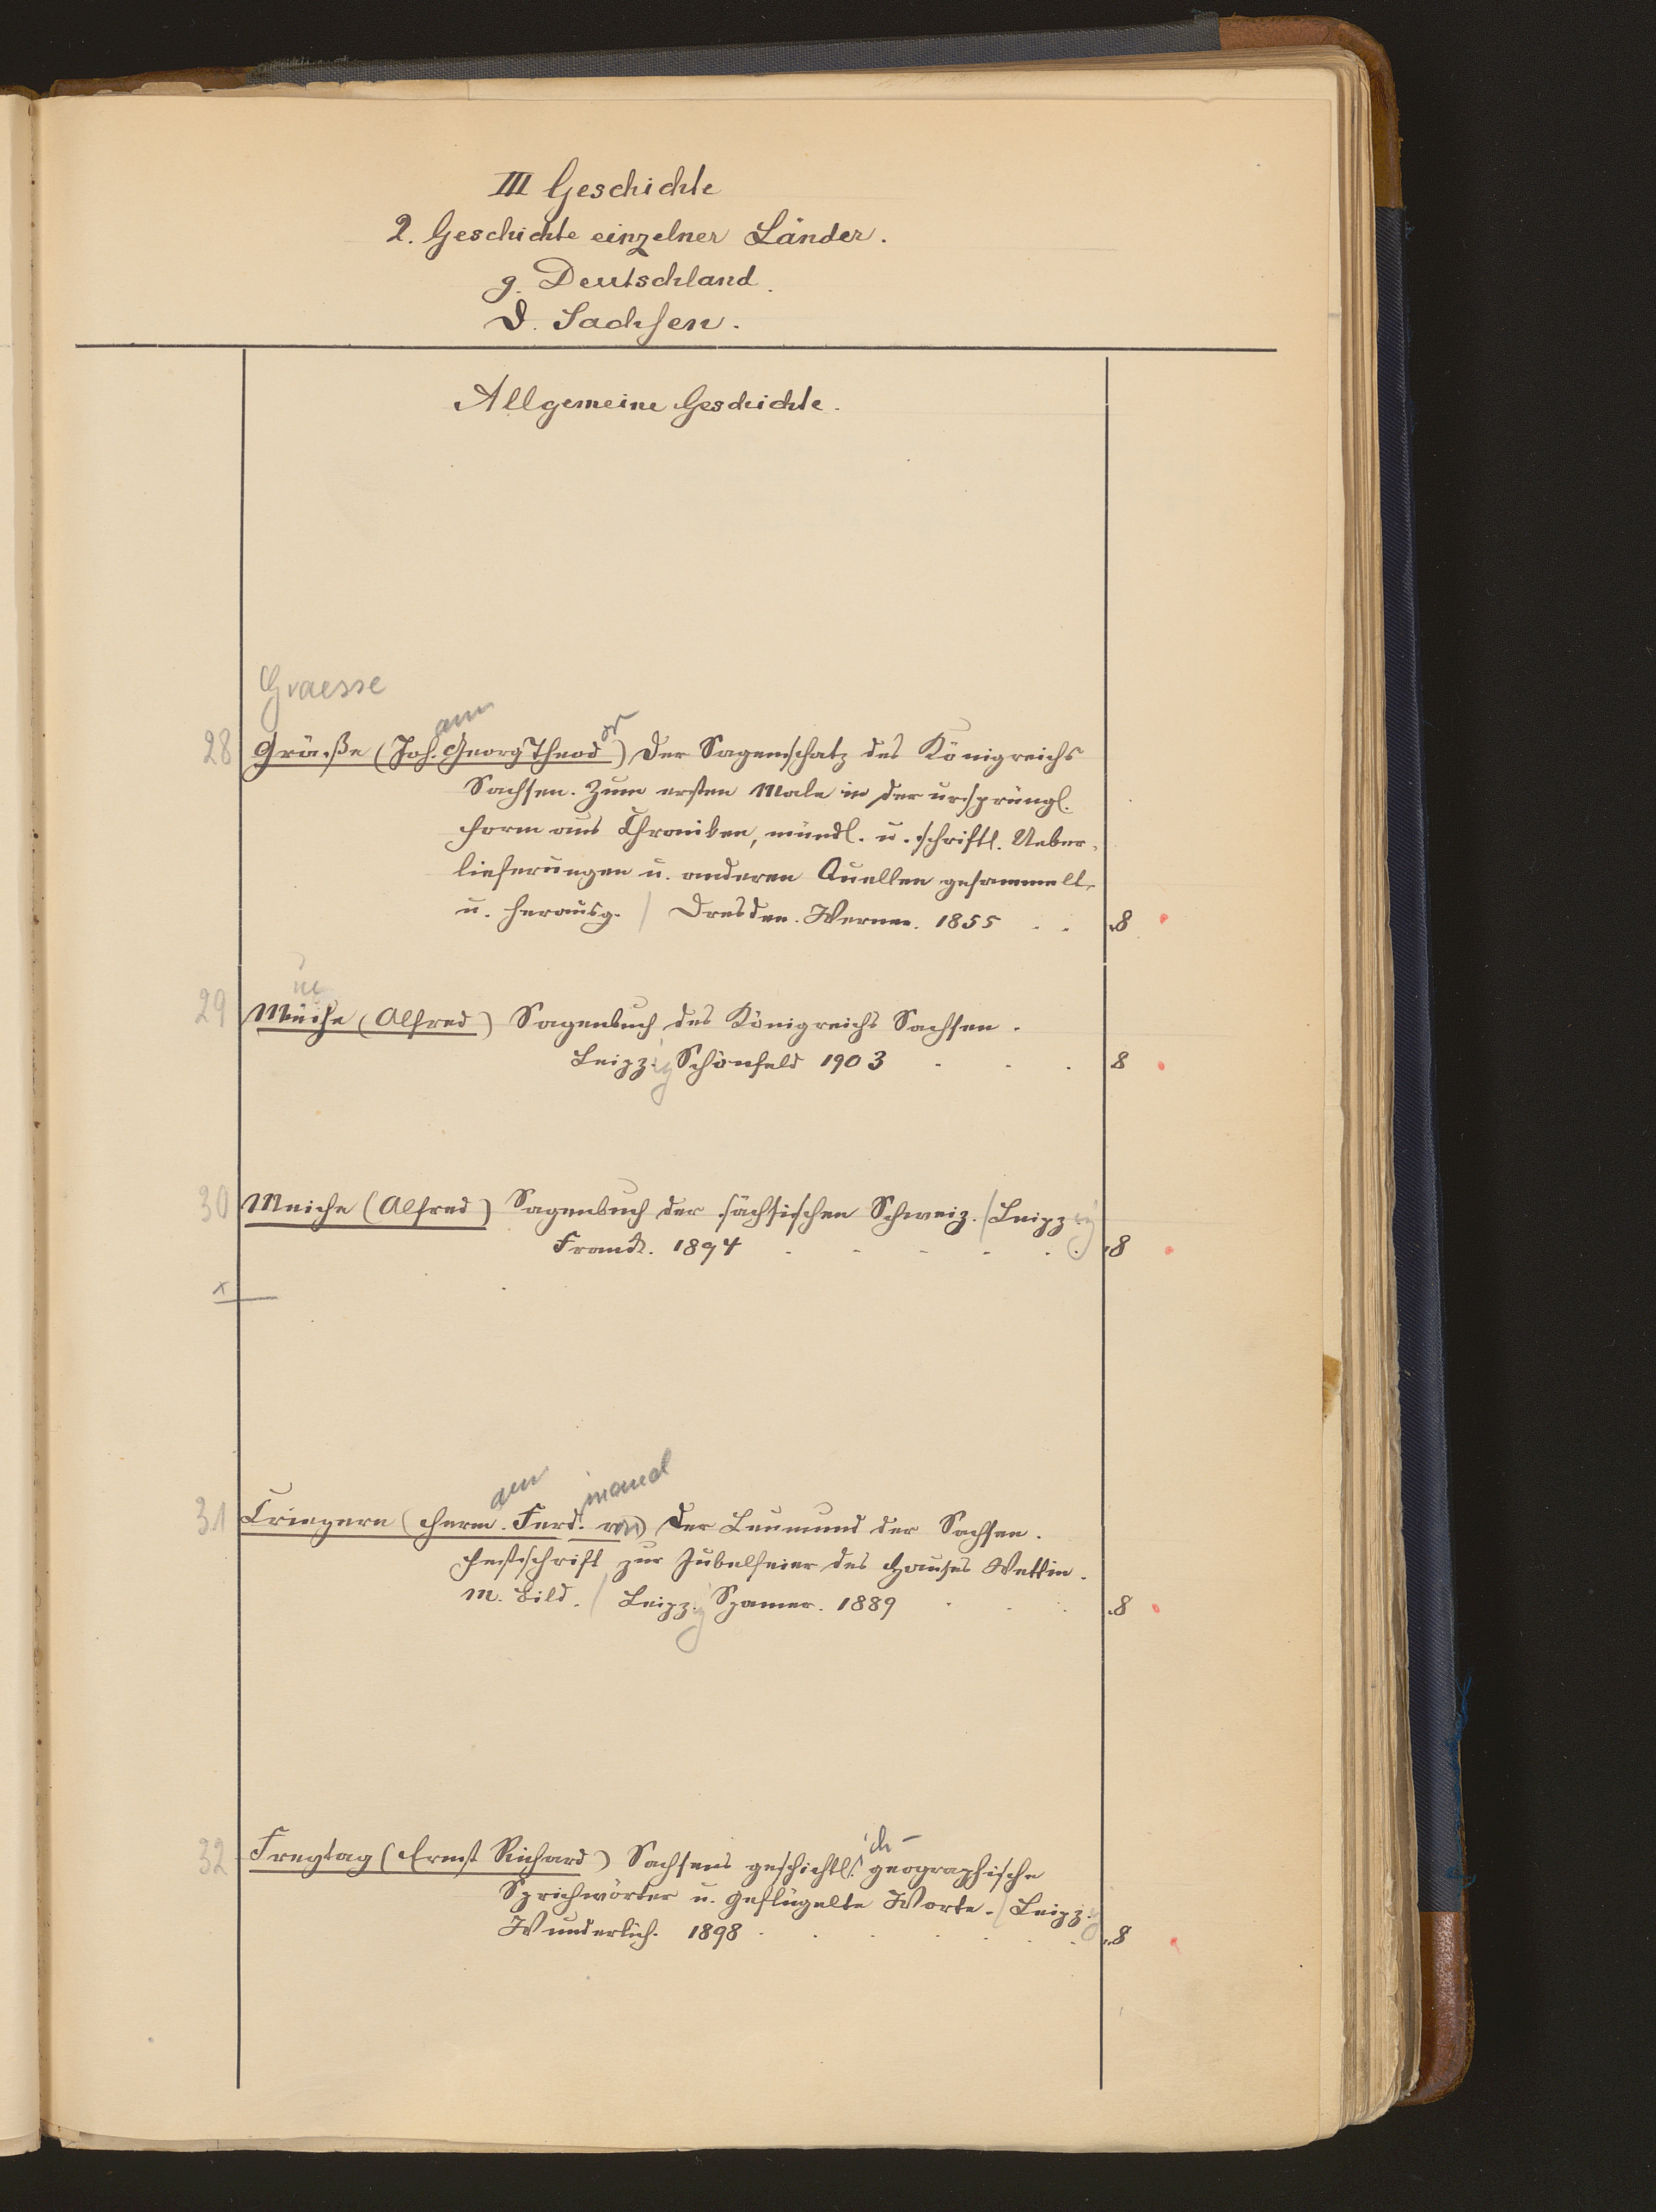 III Geschichte
2. Geschichte einzelner Länder.
g. Deutschland.
D. Sachsen.
Allgemeine Geschichte.
Graesse
ann or
28 Gräße (Joh. Georg Theod ) Der Sagenschatz des Königreichs
Sachsen. Zum ersten Male in der ursprüngl.
Form aus Chroniken, mündl. u. schriftl. Ueber-
lieferungen u. anderen Quellen gesammelt
u. herausg. / Dresden. Werner. 1855 . . 8
29 Meiche (Alfred) Sagenbuch des Königreichs Sachsen.
Leipzig Schönfeld 1903 . . . 8
30 Meiche (Alfred) Sagenbuch der sächsischen Schweiz. / Leipzig
Franck. 1894 . . . . . . 8
x
ann inand
31 Criegern (Herm. Ferd. von) Der Leumund der Sachsen.
Festschrift zur Jubelfeier des Hauses Wettin.
M. Bild. / Leipzig Spamer. 1889 . . . 8
ich -
32 Freytag (Ernst Richard) Sachsens geschichtl. geographische
Sprichwörter u. geflügelte Worte. / Leipzig
Wunderlich. 1898 . . . . . . 8